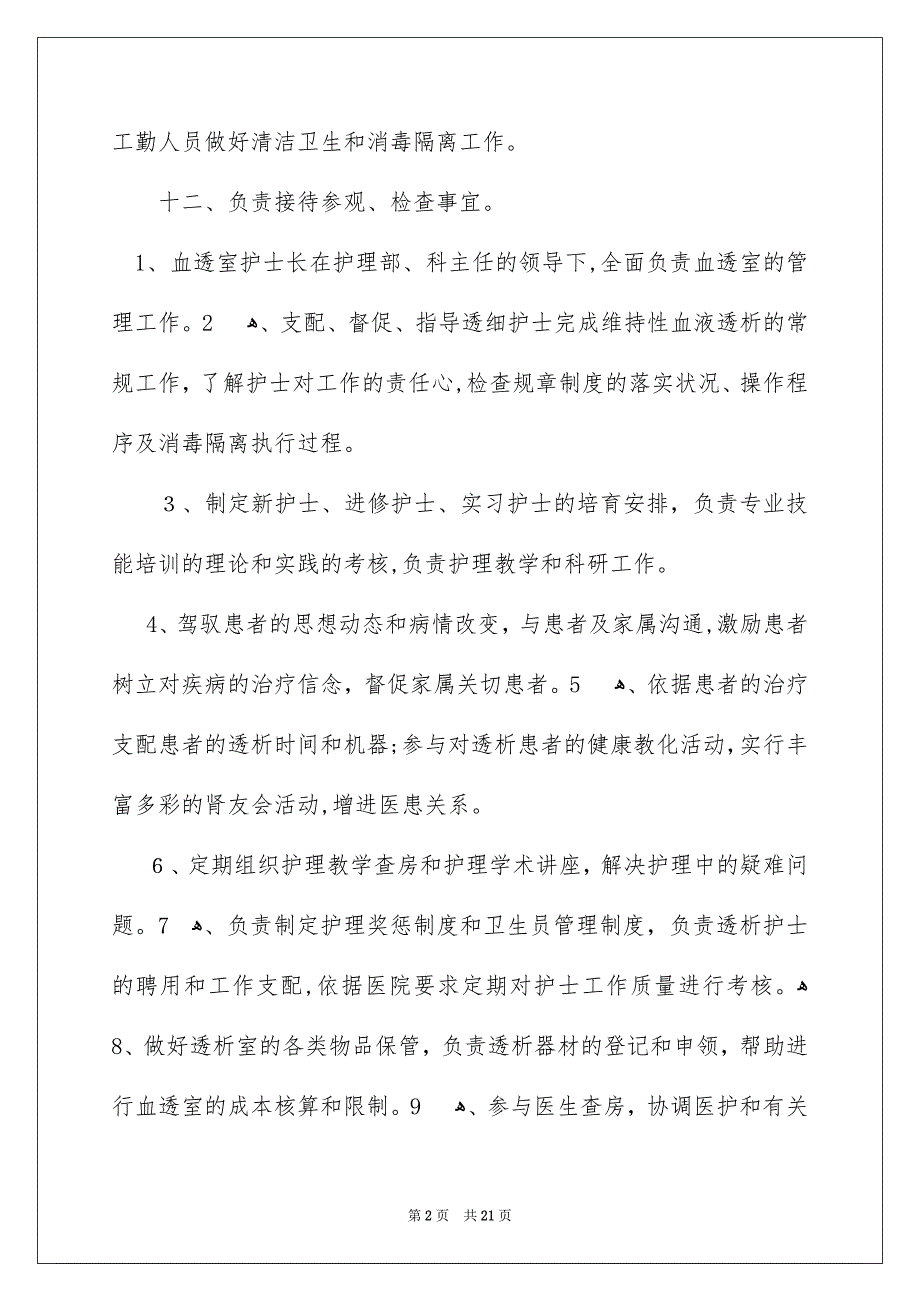 工勤人员做好清洁卫生和消毒隔离工作。
十二、负责接待参观、检查事宜。
1、血透室护士长在护理部、科主任的领导下,全面负责血透室的管
理工作。2 ﻫ、支配、督促、指导透细护士完成维持性血液透析的常
规工作，了解护士对工作的责任心,检查规章制度的落实状况、操作程
序及消毒隔离执行过程。
３、制定新护士、进修护士、实习护士的培育安排，负责专业技
能培训的理论和实践的考核,负责护理教学和科研工作。
4、驾驭患者的思想动态和病情改变，与患者及家属沟通,激励患者
树立对疾病的治疗信念，督促家属关切患者。5 ﻫ、依据患者的治疗
支配患者的透析时间和机器;参与对透析患者的健康教化活动,实行丰
富多彩的肾友会活动,增进医患关系。
６、定期组织护理教学查房和护理学术讲座，解决护理中的疑难问
题。7 ﻫ、负责制定护理奖惩制度和卫生员管理制度，负责透析护士
的聘用和工作支配,依据医院要求定期对护士工作质量进行考核。ﻫ
8、做好透析室的各类物品保管，负责透析器材的登记和申领，帮助进
行血透室的成本核算和限制。9 ﻫ、参与医生查房，协调医护和有关
第 2 页 共 21 页